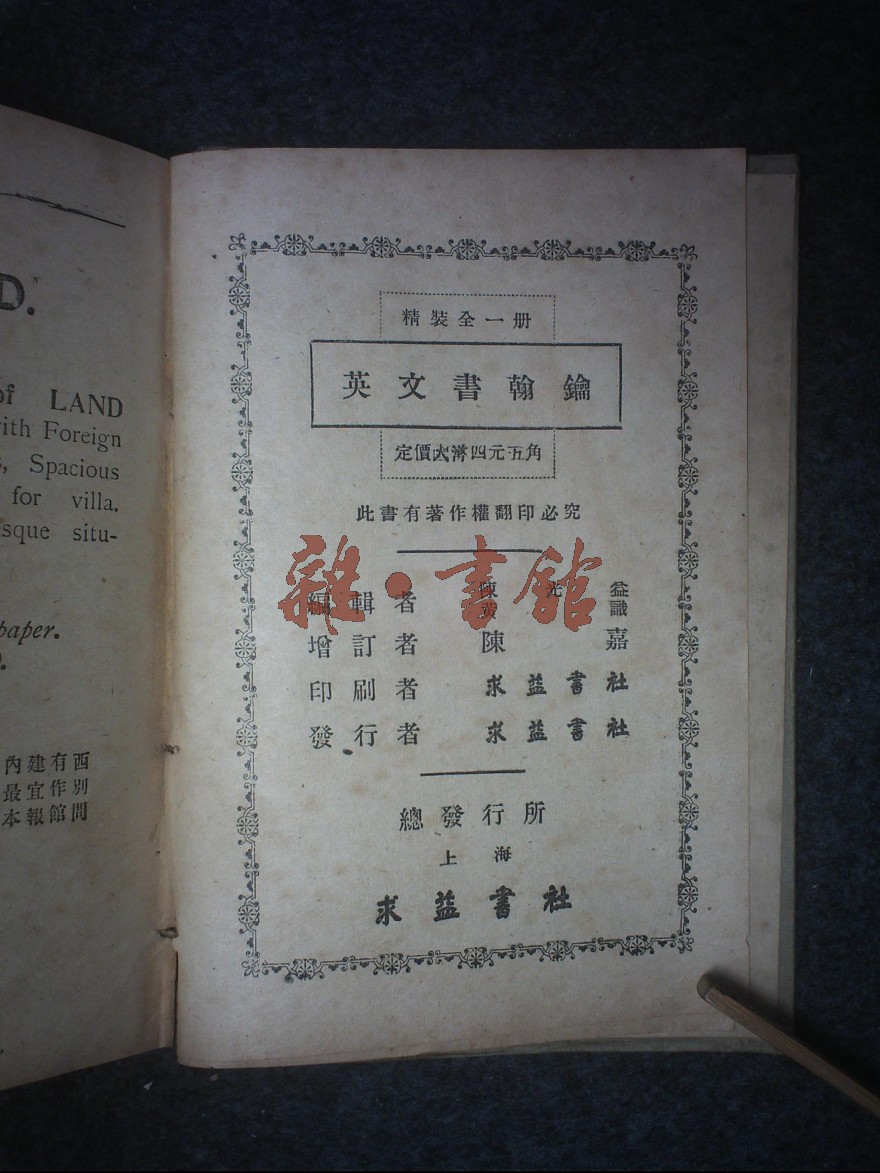 D.
of LAND
with Foreign
s, Spacious
for villa.
esque situ-
paper.
西有建內
別作宜最
間館報本
精裝全一册
英文書翰鑰
定價大洋四元五角
此書有著作權翻印必究
雜·書館
編輯者 陳光益
黄 識
增訂者 陳嘉
印刷者 求益書社
發行者 求益書社
總發行所
上海
求益書社